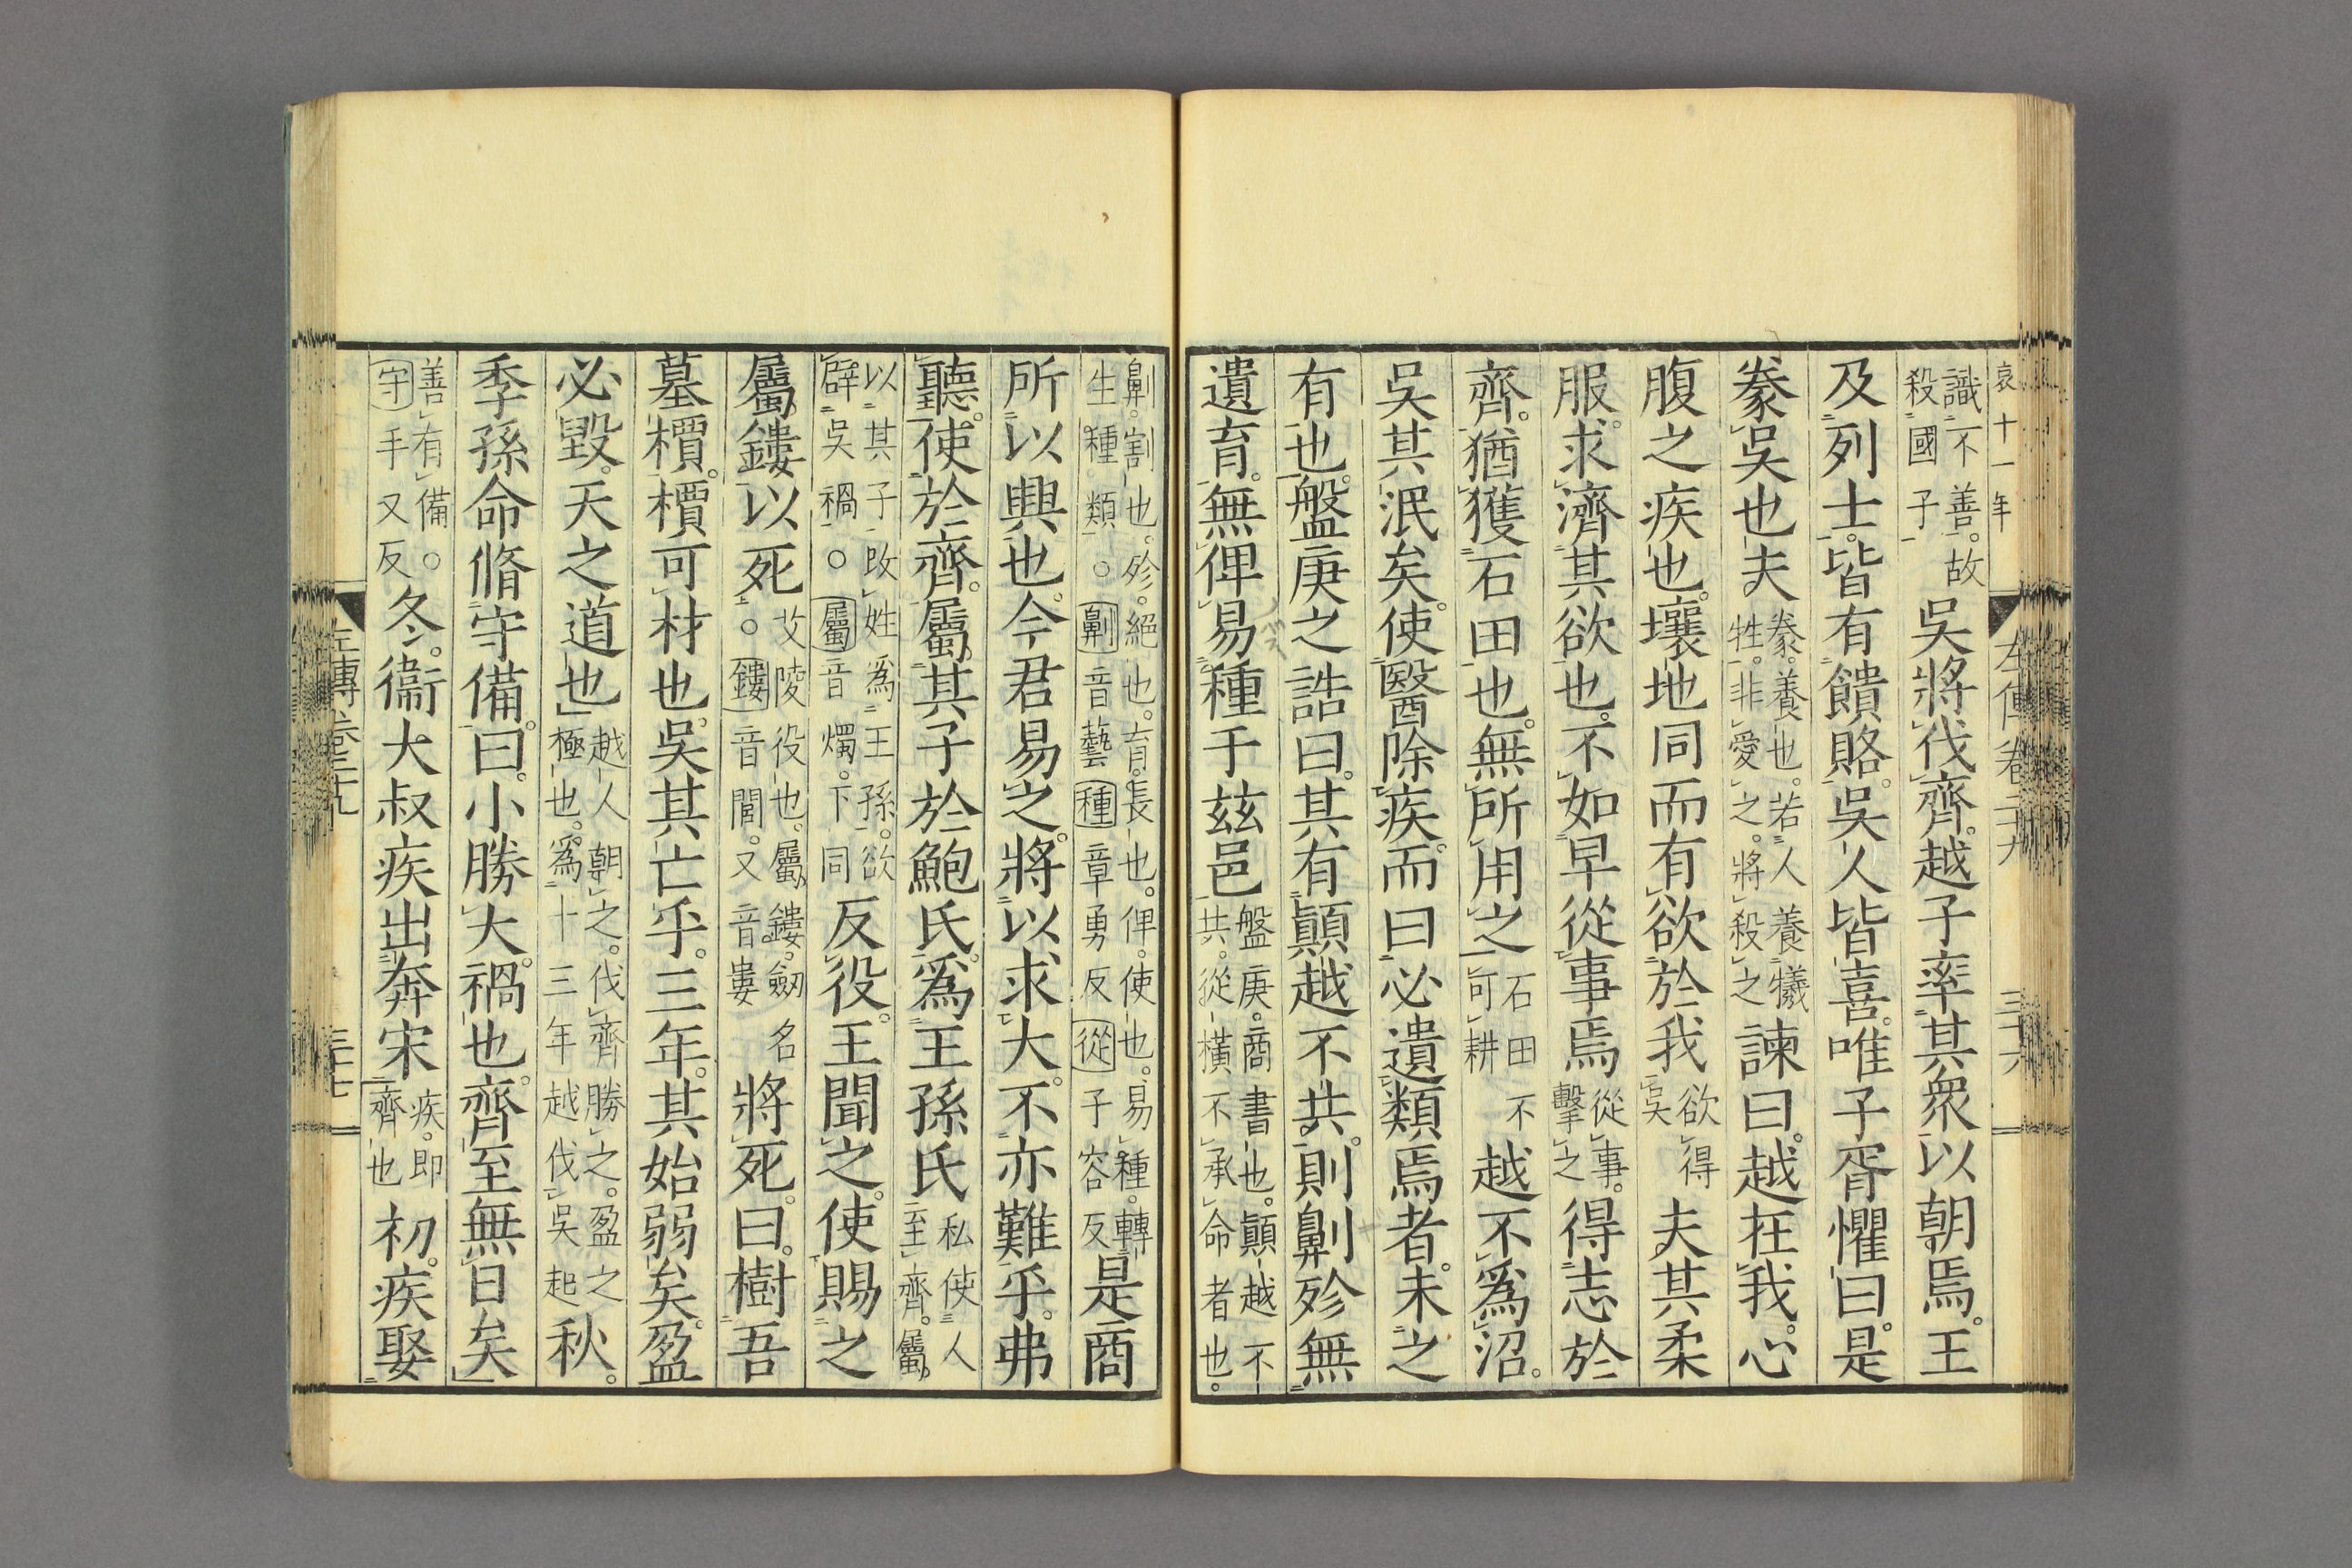 哀十一年
左傳卷二十九
三十六
識不善故殺國子吳將伐齊越子率其衆以朝焉王
及列士皆有饋賂吳人皆喜唯子胥懼曰是
豢吳也夫豢養也若人養犧牲非愛之將殺之諫曰越在我心
腹之疾也壤地同而有欲於我欲得吳夫其柔
服求濟其欲也不如早從事焉從事擊之得志於
齊猶獲石田也無所用之石田不可耕越不爲沼
吳其泯矣使醫除疾而曰必遺類焉者未之
有也盤庚之誥曰其有顚越不共則劓殄無
遺育無俾易種于茲邑盤庚商書也顚越不共從橫不承命者也
劓割也殄絕也育長也俾使也易種轉生種類○劓音藝種章勇反從子容反是商
所以興也今君易之將以求大不亦難乎弗
聽使於齊屬其子於鮑氏爲王孫氏私使人至齊屬
以其子改姓爲王孫欲辟吳禍○屬音燭下同反役王聞之使賜之
屬鏤以死艾陵役也屬鏤劒名○鏤音閭又音婁將死曰樹吾
墓檟檟可材也吳其亡乎三年其始弱矣盈
必毀天之道也越人朝之伐齊勝之盈之極也爲十三年越伐吳起秋
季孫命脩守備曰小勝大禍也齊至無日矣
善有備○守手又反冬衞大叔疾出奔宋疾即齊也初疾娶
左傳卷二十九
三十七